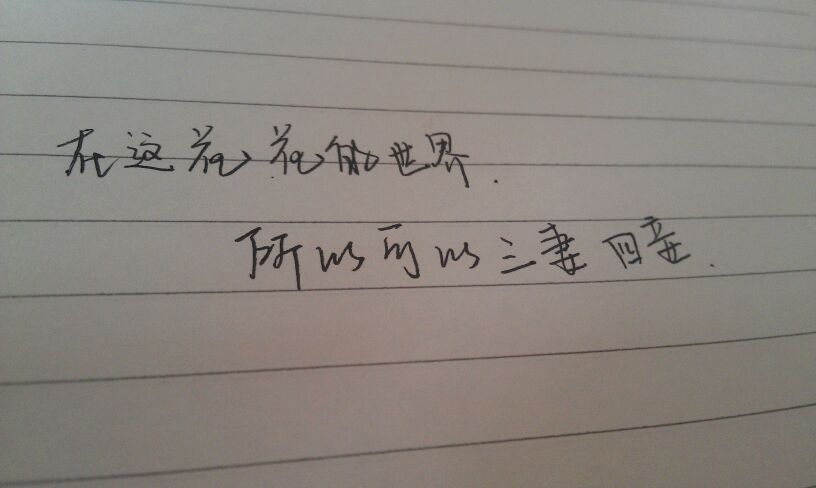 在这花花的世界.
所以可以三妻四妾.